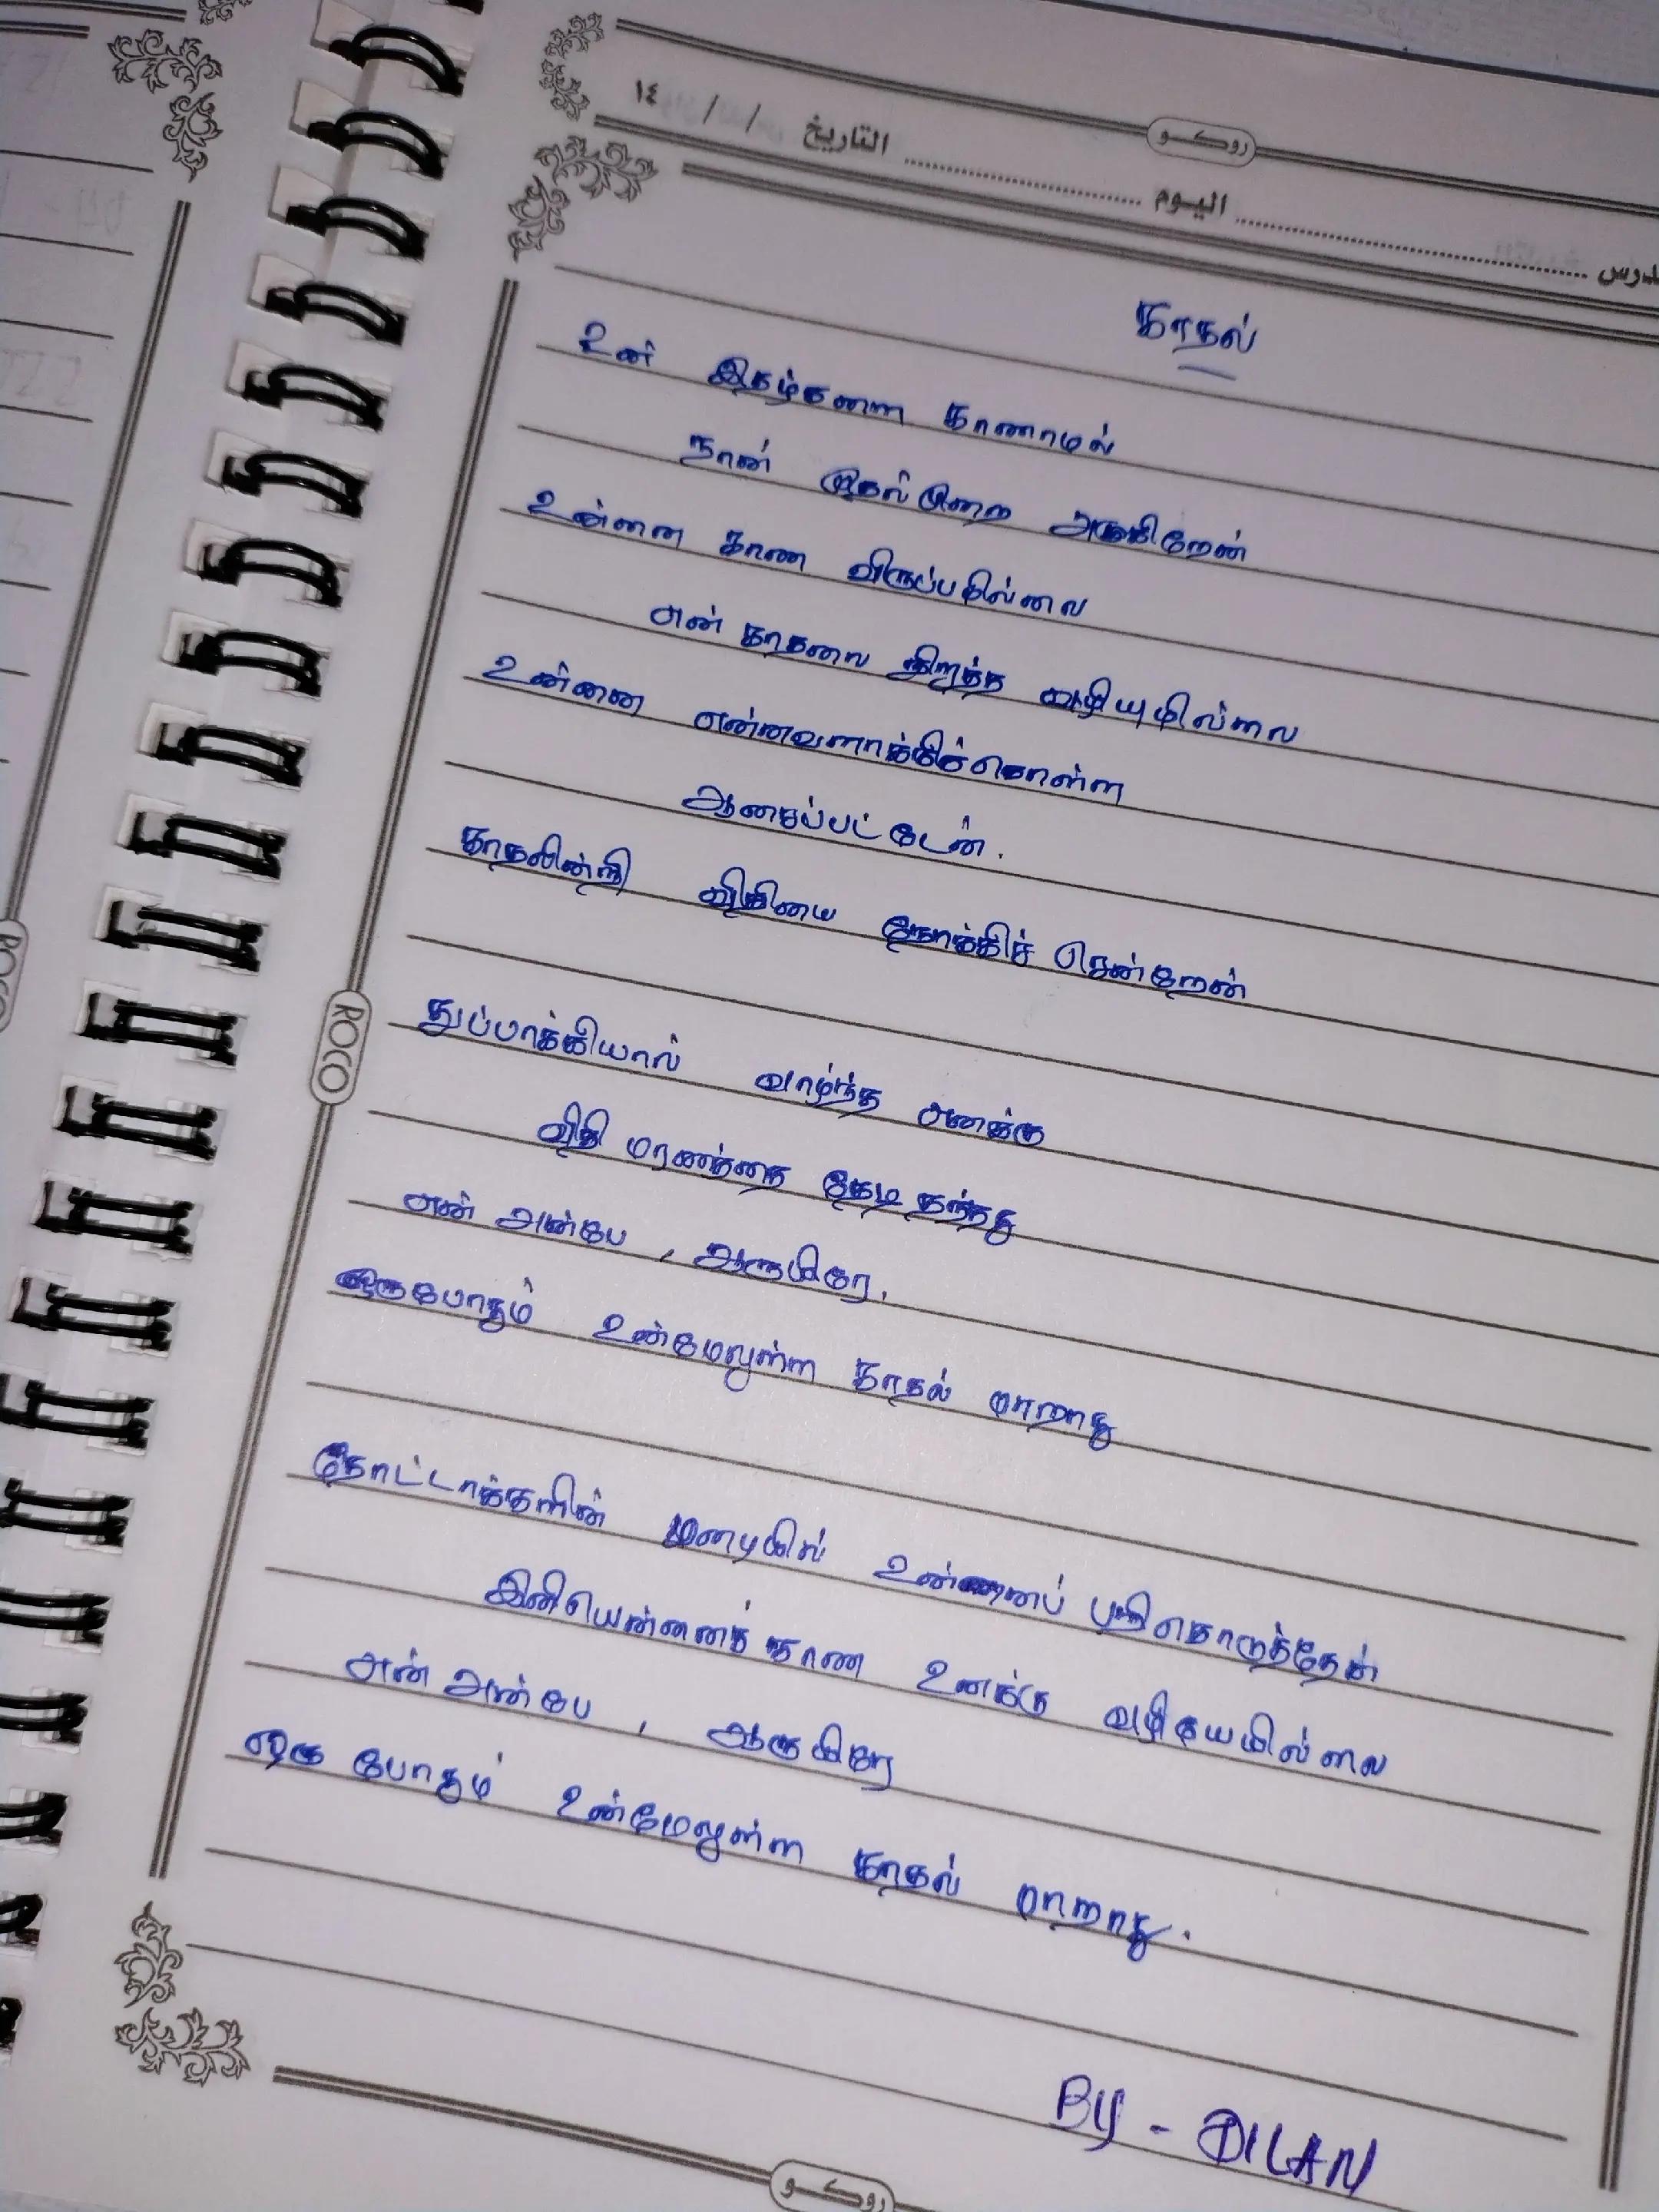 روكـو
التاريخ / / ١٤
اليوم
காதல்
உன் இதழ்களை காணாமல்
நான் முதல்முறை அழுகிறேன்
உன்னை காண விருப்பமில்லை
என் காதலை நிறுத்த வழியுமில்லை
உன்னை என்னவளாக்கிக்கொள்ள
ஆசைப்பட்டேன்.
காதலின்றி விதியை நோக்கிச் சென்றேன்
துப்பாக்கியால் வாழ்ந்த எனக்கு
விதி மரணத்தை தேடி தந்தது
என் அன்பே, ஆருயிரே,
ஒருபோதும் உன்மேலுள்ள காதல் மாறாது
தோட்டாக்களின் மழையில் உன்னைப் பறிகொடுத்தேன்
இனியென்னைக் காண உனக்கு வழியேயில்லை
என் அன்பே, ஆருயிரே
ஒரு போதும் உன்மேலுள்ள காதல் மாறாது.
BY - DILAN
ROCO
روكـو